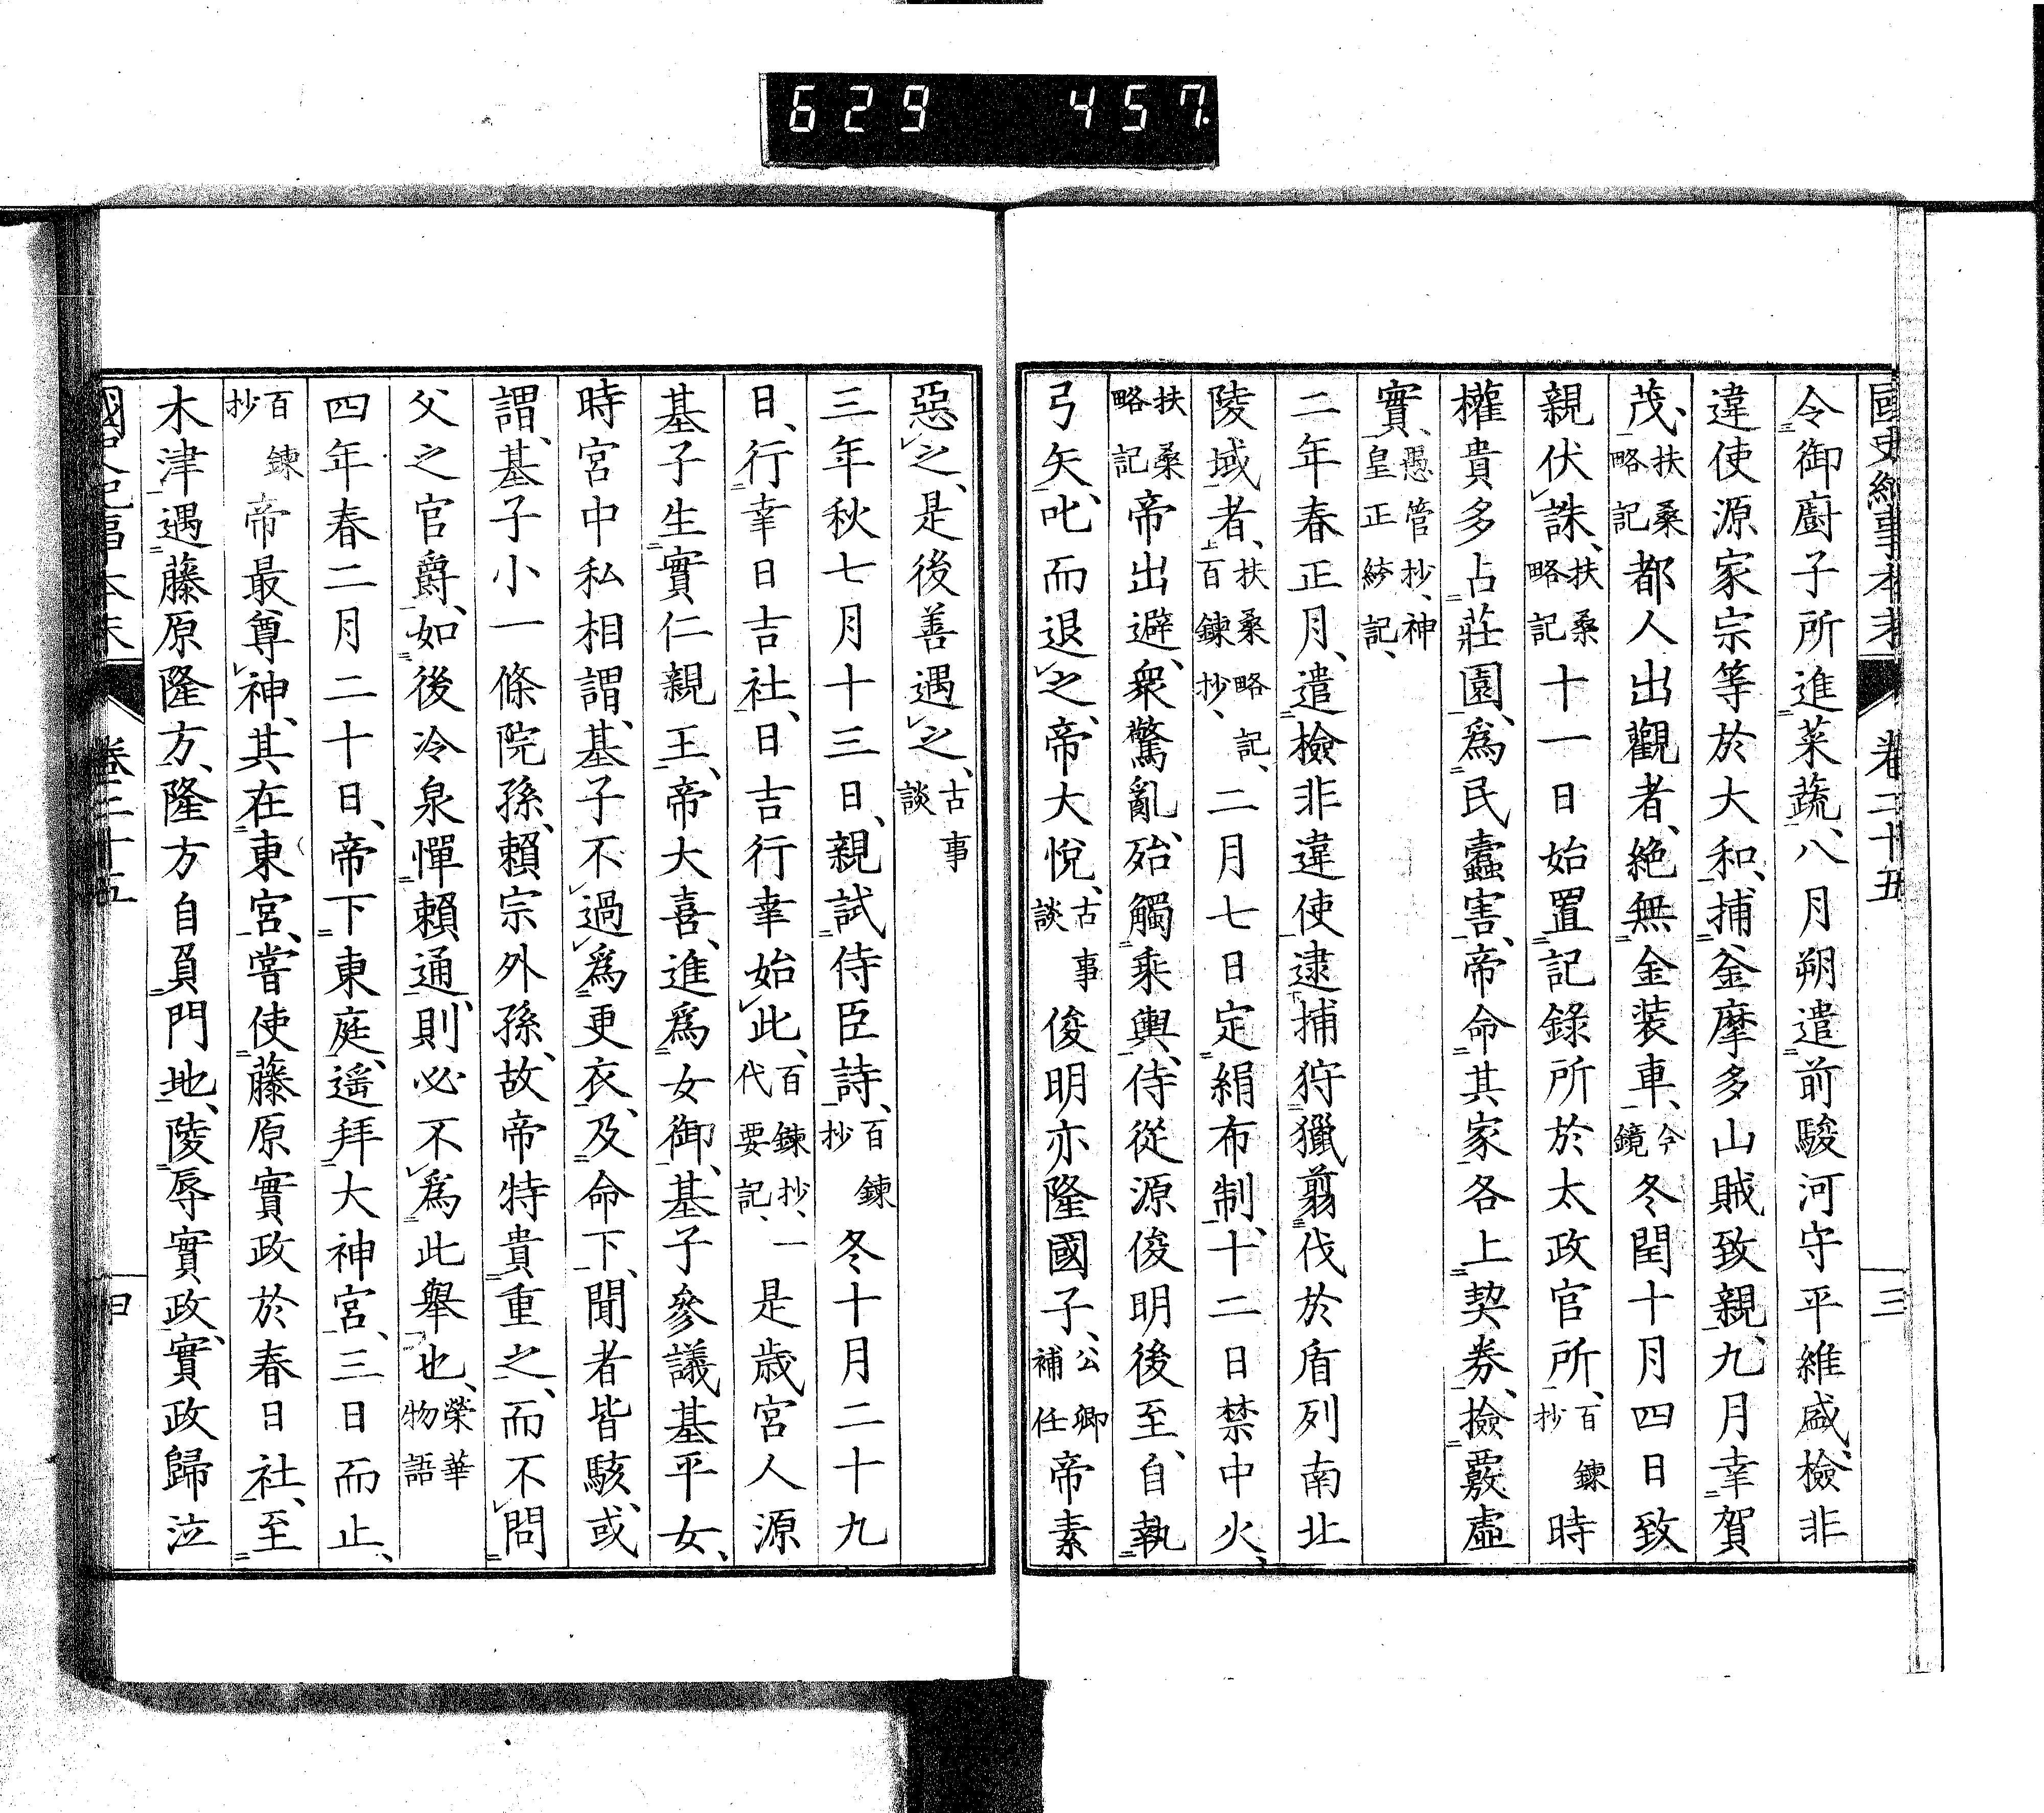 629 457.
國史紀事本末 卷二十五 三
令御廚子所進菜蔬、八月朔遣前駿河守平維盛、檢非
違使源家宗等於大和、捕釜摩多山賊致親、九月幸賀
茂、扶桑略記都人出觀者、絶無金装車、今鏡冬閏十月四日致
親伏誅、扶桑略記十一日始置記錄所於太政官所、百鍊抄時
權貴多占莊園、爲民蠹害、帝命其家各上契券、撿覈虛
實、愚管抄、神皇正統記、
二年春正月、遣檢非違使逮捕狩獵翦伐於盾列南北
陵域者、扶桑略記、百鍊抄、二月七日定絹布制、十二日禁中火、
扶桑略記帝出避、衆驚亂、殆觸乘輿、侍從源俊明後至、自執
弓矢、叱而退之、帝大悅、古事談俊明亦隆國子、公卿補任帝素
惡之、是後善遇之、古事談
三年秋七月十三日、親試侍臣詩、百鍊抄冬十月二十九
日、行幸日吉社、日吉行幸始此、百鍊抄、一代要記、是歲宮人源
基子生實仁親王、帝大喜、進爲女御、基子參議基平女、
時宮中私相謂、基子不過爲更衣、及命下、聞者皆駭、或
謂、基子小一條院孫、賴宗外孫、故帝特貴重之、而不問
父之官爵、如後冷泉憚賴通、則必不爲此舉也、榮華物語
四年春二月二十日、帝下東庭、遥拜大神宮、三日而止、
百鍊抄帝最尊神、其在東宮、嘗使藤原實政於春日社、至
木津遇藤原隆方、隆方自負門地、陵辱實政、實政歸泣
國史紀事本末 卷二十五